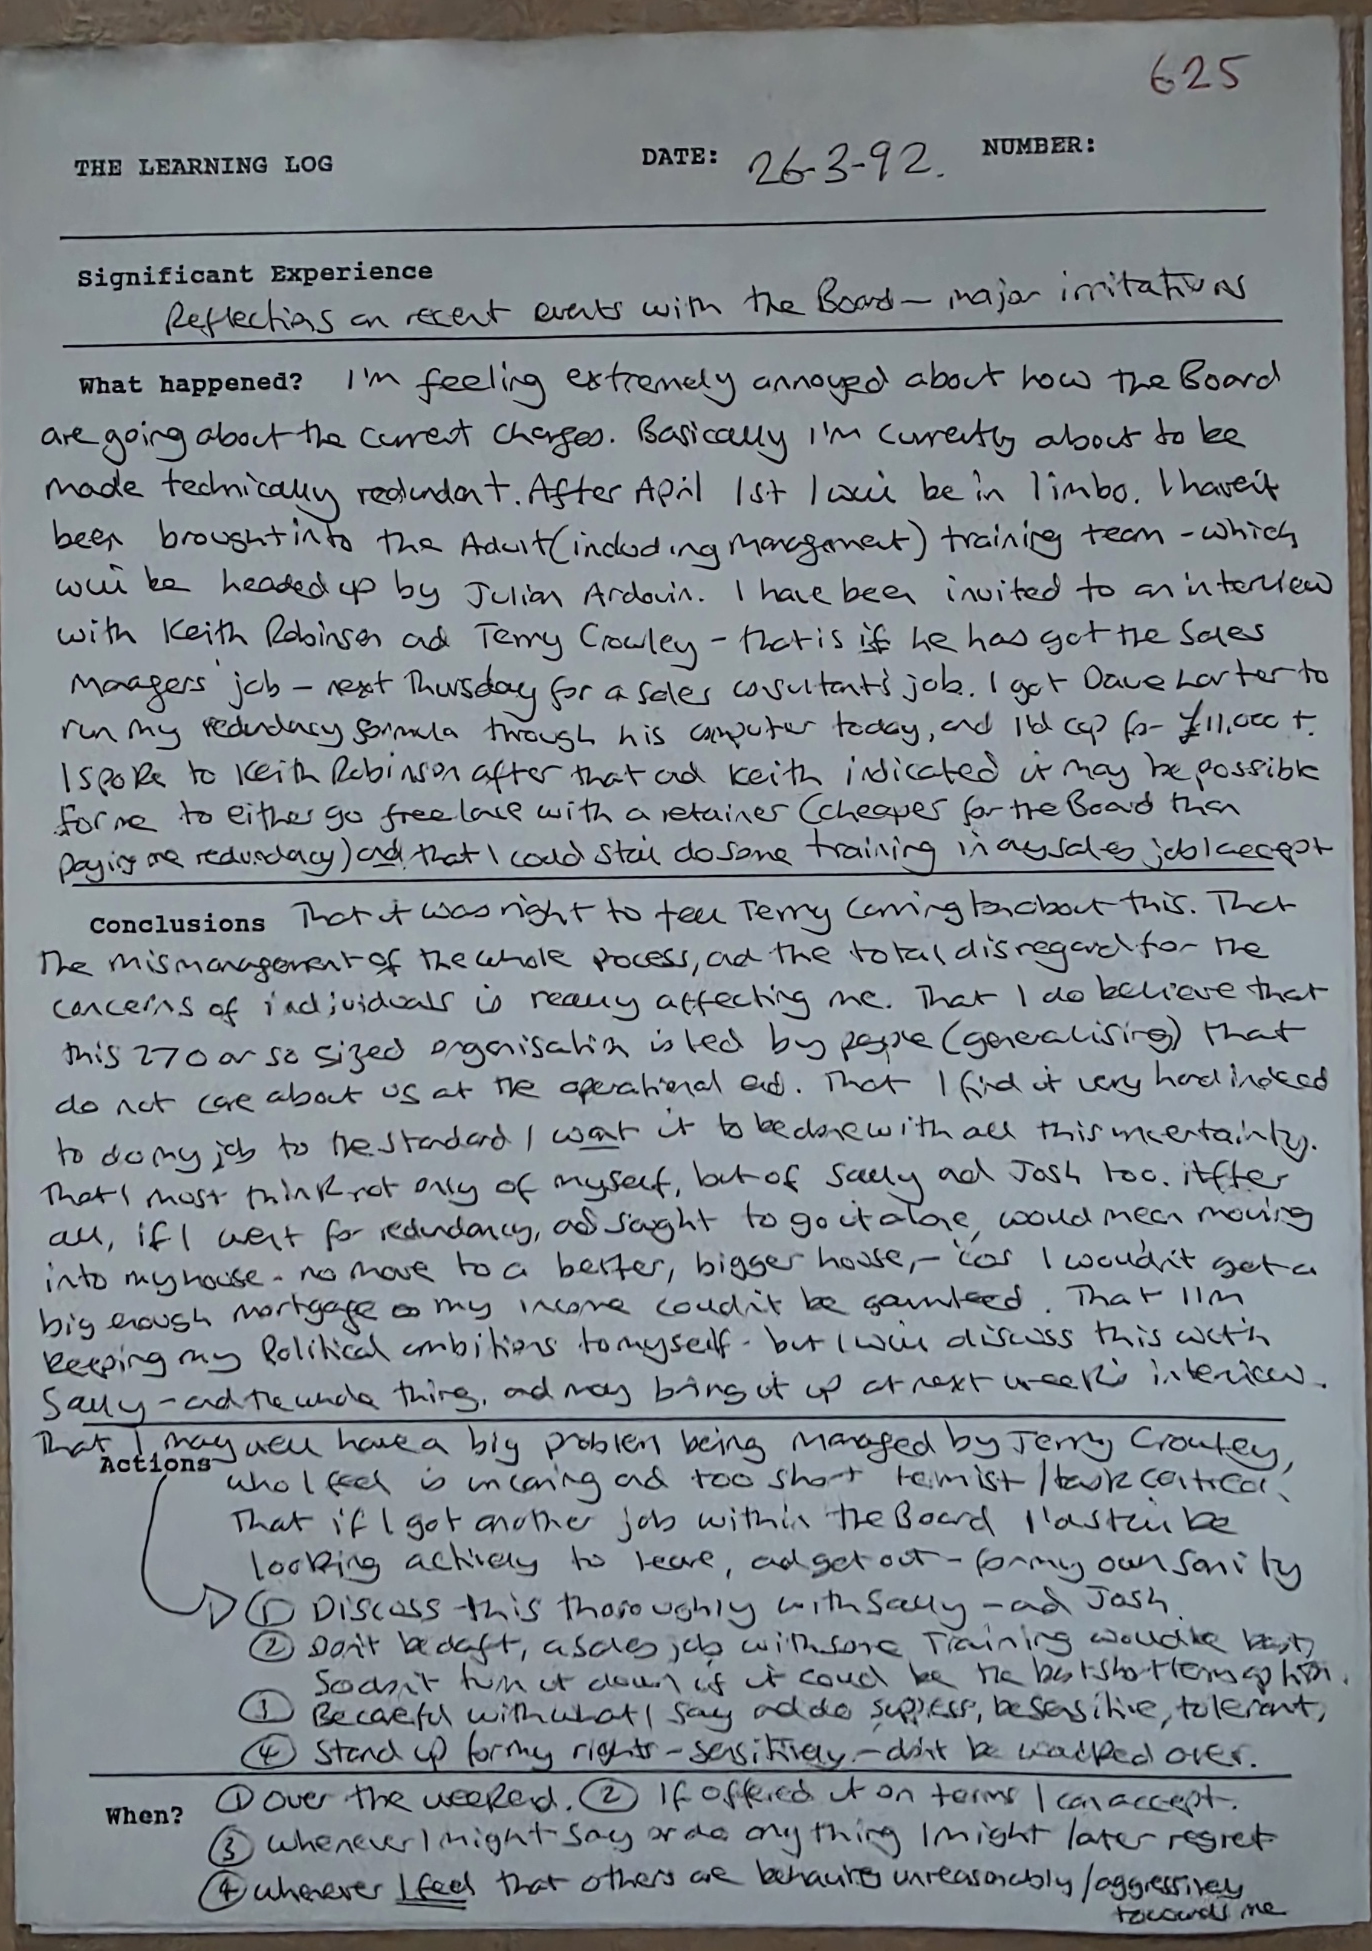 625
THE LEARNING LOG DATE: 26-3-92. NUMBER:
Significant Experience
Reflections on recent events with the Board - major irritations
What happened? I'm feeling extremely annoyed about how the Board
are going about the current changes. Basically I'm currently about to be
made technically redundant. After April 1st I will be in limbo. I haven't
been brought into the Adult (including Management) training team - which
will be headed up by Julian Ardouin. I have been invited to an interview
with Keith Robinson and Terry Crowley - that is if he has got the Sales
Managers' job - next Thursday for a sales consultant's job. I got Dave Larter to
run my redundancy formula through his computer today, and I'd cop for £11,000 +.
I spoke to Keith Robinson after that and Keith indicated it may be possible
for me to either go freelance with a retainer (cheaper for the Board than
paying me redundacy) and that I could still do some training in any sales job I accept
Conclusions That it was right to tell Terry Cunnington about this. That
the mismanagement of the whole process, and the total disregard for the
concerns of individuals is really affecting me. That I do believe that
this 270 or so sized organisation is led by people (generalising) that
do not care about us at the operational end. That I find it very hard indeed
to do my job to the standard I want it to be done with all this uncertainty.
That I must think not only of myself, but of Sally and Josh too. After
all, if I went for redundancy, and sought to go it alone, would mean moving
into my house - no move to a better, bigger house, - 'cos I wouldn't get a
big enough mortgage as my income couldn't be guaranteed. That I'm
keeping my Political ambitions to myself - but I will discuss this with
Sally - and the whole thing, and may bring it up at next week's interview.
That I may well have a big problem being managed by Terry Crowley,
Actions who I feel is uncaring and too short termist / task centred.
That if I got another job within the Board I'd still be
looking actively to leave, and get out - for my own sanity
① Discuss this thoroughly with Sally - and Josh.
② Don't be daft, a sales job with some Training would be best,
So don't turn it down if it could be the best short term option.
③ Be careful with what I say and do suppress, be sensitive, tolerant,
④ Stand up for my rights - sensitively - don't be walked over.
When? ① Over the weekend. ② If offered it on terms I can accept.
③ Whenever I might say or do anything I might later regret
④ Whenever I feel that others are behaving unreasonably / aggressively
towards me